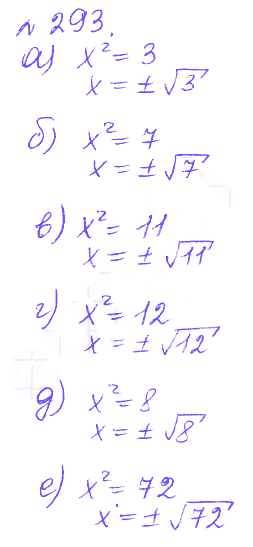 № 293.
а) x² = 3
x = ± √3
б) x² = 7
x = ± √7
в) x² = 11
x = ± √11
г) x² = 12
x = ± √12
д) x² = 8
x = ± √8
е) x² = 72
x = ± √72